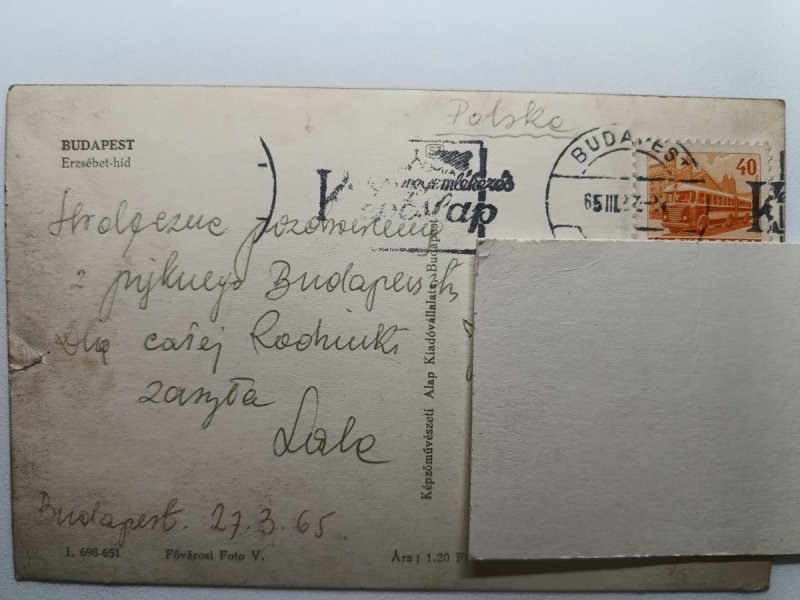 BUDAPEST
Erzsébet-híd
Polska
BUDAPEST
65 III. 27.
40
emlékezés
lap
Serdeczne pozdrowienia
z pięknego Budapesztu
Dla całej Rodzinki
zaszła
Lala
Budapest. 27.3.65.
Képzőművészeti Alap Kiadóvállalata, Budapest
I. 698-651
Fővárosi Foto V.
Ára: 1.20 F